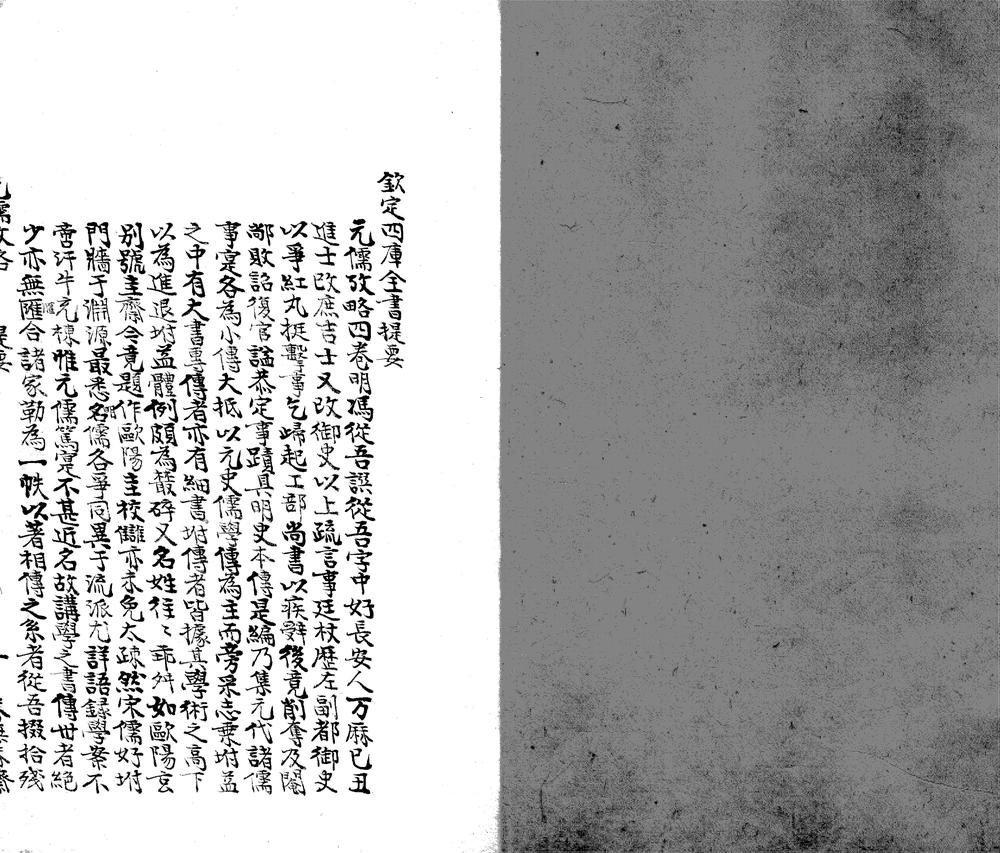 欽定四庫全書提要
元儒攷略四卷明馮從吾譔從吾字中好長安人万厤已丑
進士改庶吉士又改御史以上疏言事廷杖歷左副都御史
以爭紅丸挺擊事乞歸起工部尚書以疾辭後竟削奪及閹
鄰敗詔復官諡恭定事蹟具明史本傳是編乃集元代諸儒
事寔各為小傳大抵以元史儒學傳為主而旁采志乗坿益
之中有大書專傳者亦有細書坿傳者皆據其學術之高下
以為進退坿益體例頗為蕞碎又名姓往〻乖舛如歐陽玄
别號圭齋今竟題作歐陽圭挍讎亦未免太疎然宋儒好坿
門牆于淵源最悉明儒各爭同異于流派尤詳語録學案不
啻汗牛充棟惟元儒篤寔不甚近名故講學之書傳世者絕
少亦無匯合諸家勒為一帙以著相傳之系者從吾掇拾殘